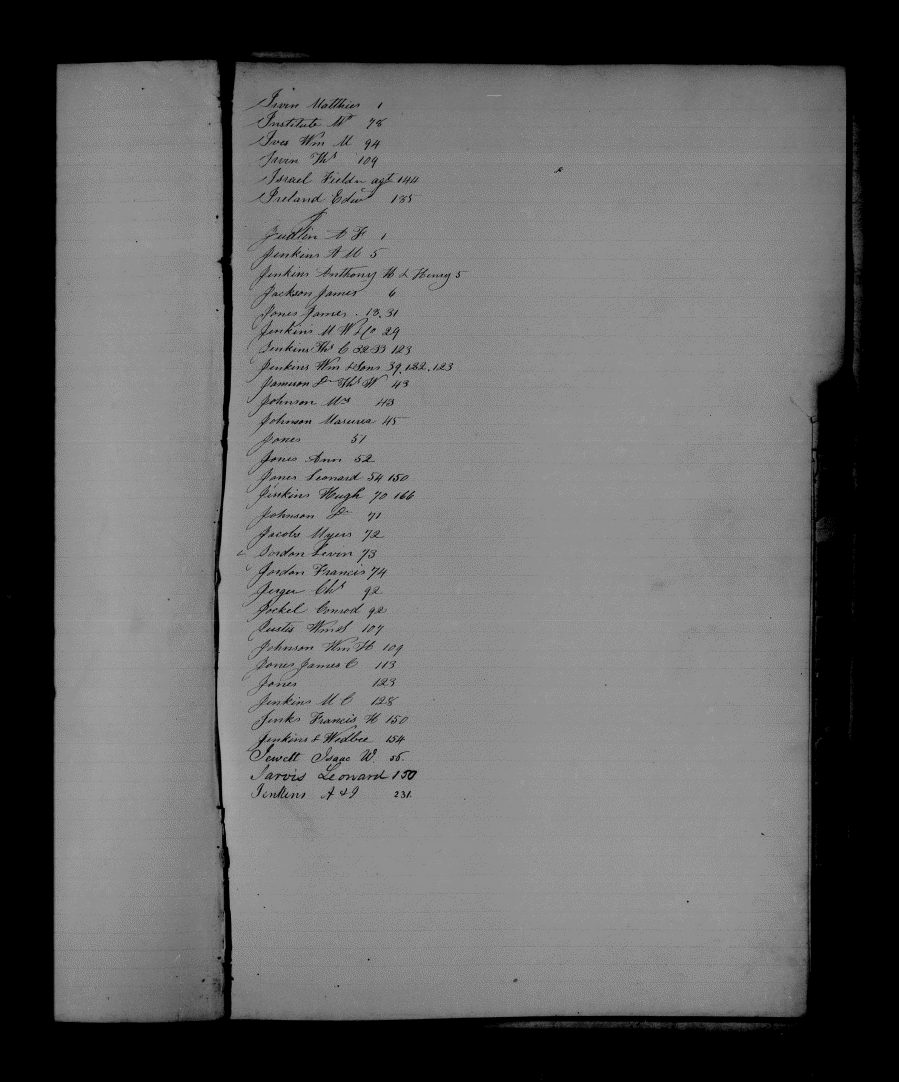 Irvin Matthias 1
Institute Md 78
Ives Wm M 94
Irvin Thos 109
Israel Fielder agt 144
Ireland Edwd 185
J
Judlin A F 1
Jenkins A M 5
Jenkins Anthony H & Henry 5
Jackson James 6
Jones James 13.31
Jenkins M W & Co 29
Jenkins Thos C 32 33 123
Jenkins Wm & Sons 39.122.123
Jameson Dr Thos W 43
Johnson Mrs 43
Johnson 45
Jones 51
Jones Ann 52
Jones Leonard 54 150
Jenkins Hugh 70 166
Johnson Dr 71
Jacobs Myers 72
Jordan Levin 73
Jordan Francis 74
Jerger Chs 92
Jockel Conrod 92
Justis Wm S 107
Johnson Wm H 109
Jones James C 113
Jones 123
Jenkins M C 128
Jenks Francis H 150
Jenkins & Wedbee 154
Jewett Isaac W. 55.
Jarvis Leonard 150
Jenkins A & I 231.